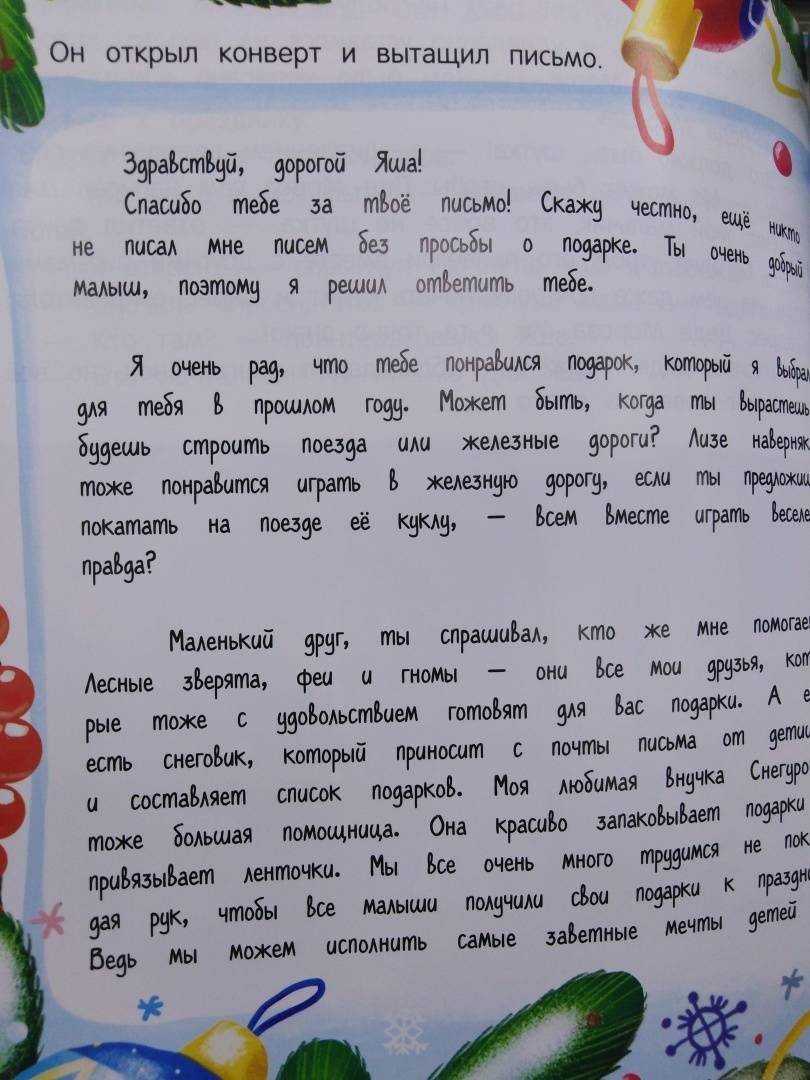 Он открыл конверт и вытащил письмо.
Здравствуй, дорогой Яша!
Спасибо тебе за твоё письмо! Скажу честно, ещё никто
не писал мне писем без просьбы о подарке. Ты очень добрый
малыш, поэтому я решил ответить тебе.
Я очень рад, что тебе понравился подарок, который я выбрал
для тебя в прошлом году. Может быть, когда ты вырастешь
будешь строить поезда или железные дороги? Лизе наверняк
тоже понравится играть в железную дорогу, если ты предложи
покатать на поезде её куклу, — всем вместе играть веселе
правда?
Маленький друг, ты спрашивал, кто же мне помогае
Лесные зверята, феи и гномы — они все мои друзья, кот
рые тоже с удовольствием готовят для вас подарки. А е
есть снеговик, который приносит с почты письма от дети
и составляет список подарков. Моя любимая внучка Снегуро
тоже большая помощница. Она красиво запаковывает подарки
привязывает ленточки. Мы все очень много трудимся не пок
дая рук, чтобы все малыши получили свои подарки к праздн
Ведь мы можем исполнить самые заветные мечты детей